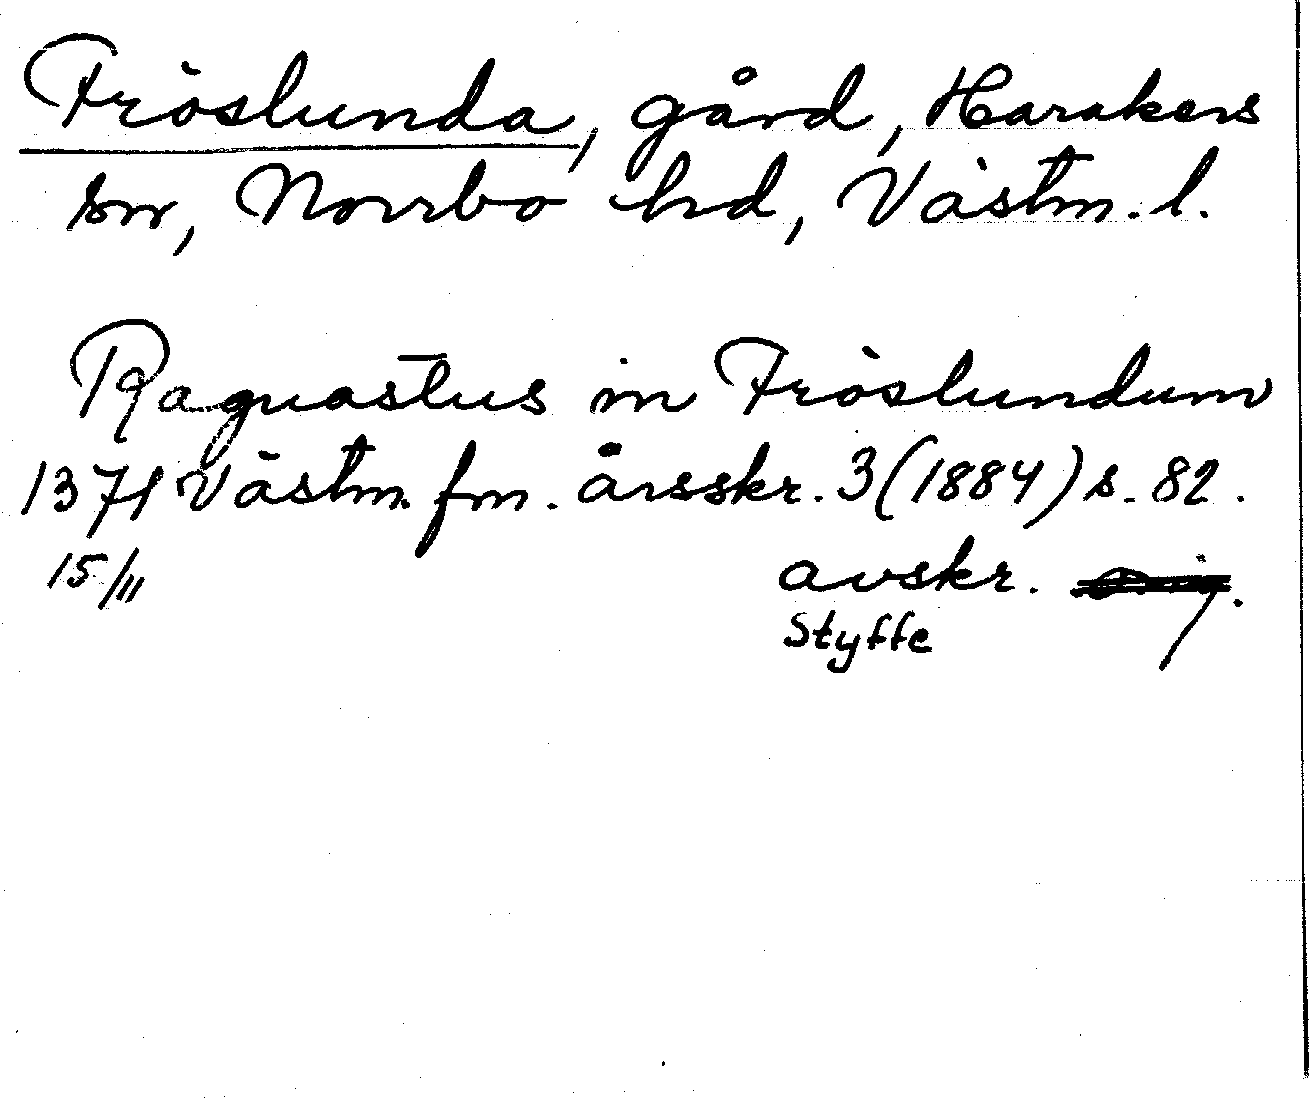 Fröslunda, gård, Harakers
sn, Norrbo hd, Västm. l.
Raguastus in Fröslundum
1371 Västm. fm. årsskr. 3 (1884) s. 82.
15/11 avskr.
Styffe